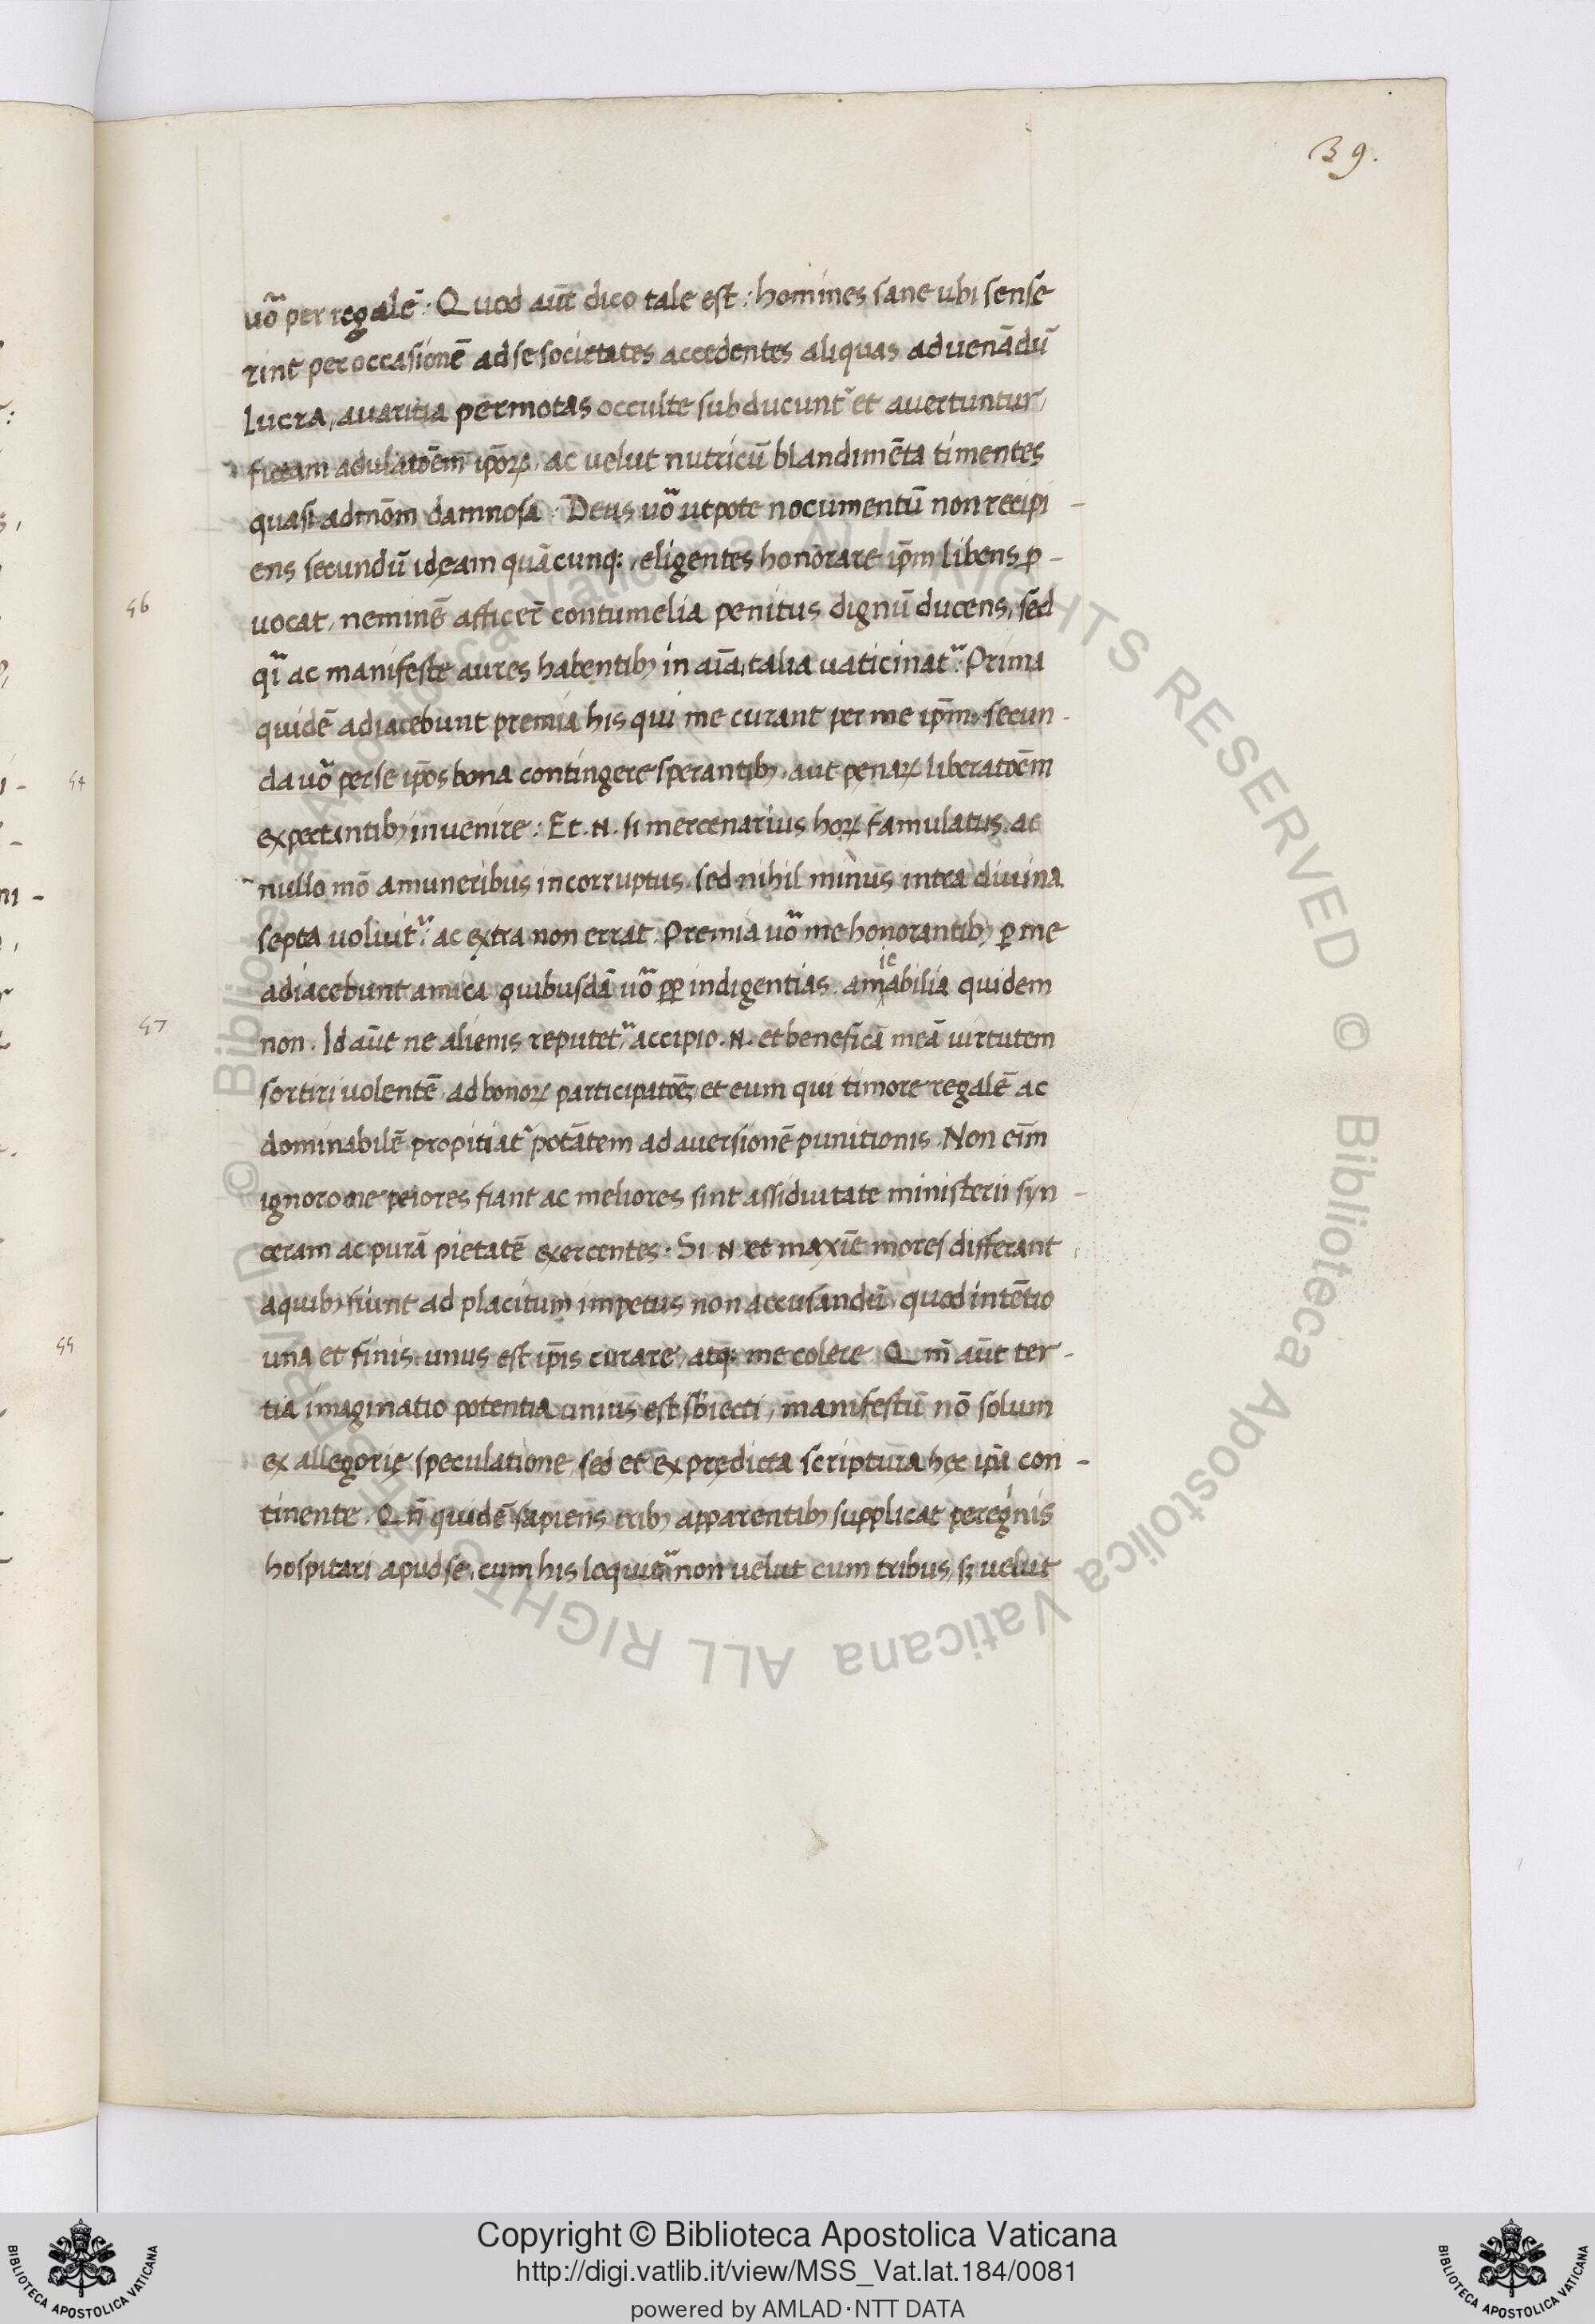 39.
uõ per regalē : Quod aūt dico tale est : homines sane ubi sense
rint per occasionē ad se societates accedentes aliquas ad uenādū
lucra, auaritia permotas occulte subducunt᷑ et auertuntur,
fictam adulatōem ip̄oꝝ, ac uelut nutricū blandimēta timentes
quasi admōm damnosa : Deus uõ utpote nocumentū non recipi -
ens secundū ideam quācunq; , eligentes honorare ip̄m libens ꝓ -
56 uocat, neminē afficer̄ contumelia penitus dignū ducens, sed
qͥ ac manifeste aures habentibꝫ in aīa, talia uaticinat᷑ : Prima
quidē adiacebunt premia his qui me curant per me ip̄m, secun -
da uõ per se ip̄os bona contingere sperantibꝫ, aut penaꝝ liberatōem
expectantibꝫ inuenire : Et . N . si mercenarius hoꝝ famulatus. ac
nullo mō a muneribus incorruptus. sed nihil minus intra diuina
septa uoluit᷑ : ac extra non errat. Premia uõ me honorantibꝫ ꝑ me
adiacebunt amica quibusdā uõ ꝓꝑ indigentias. am ic abilia quidem
57 non. Id aūt ne alienis reputet᷑, accipio. N. et beneficā meā uirtutem
sortiri uolentē ad bonoꝝ participatōeꝫ, et eum qui timore regalē ac
dominabilē propitiat᷑ potātem ad auersionē punitionis. Non eīm
ignoro ne peiores fiant ac meliores sint assiduitate ministerii syn -
ceram ac purā pietatē exercentes. Si N et maxīe mores differant
a quibꝫ fiunt ad placitum impetus non accusandū, quod intētio
una et finis. unus est ip̄is curare, atq; me colere. Qm̄ aūt ter -
tia imaginatio potentia unius est sb̄iecti, manifestū nō solum
ex allegorię speculatione, sed et ex prędicta scriptura hęc ip̄a con -
tinente. Qn̄ quidē sapiens tribꝫ apparentibꝫ supplicat peregͥnis
hospitari apud se, cum his loquit᷑ non uelut cum tribus, sꝫ uelut
54
55
Copyright © Biblioteca Apostolica Vaticana
http://digi.vatlib.it/view/MSS_Vat.lat.184/0081
powered by AMLAD·NTT DATA
BIBLIOTECA APOSTOLICA VATICANA
BIBLIOTECA APOSTOLICA VATICANA